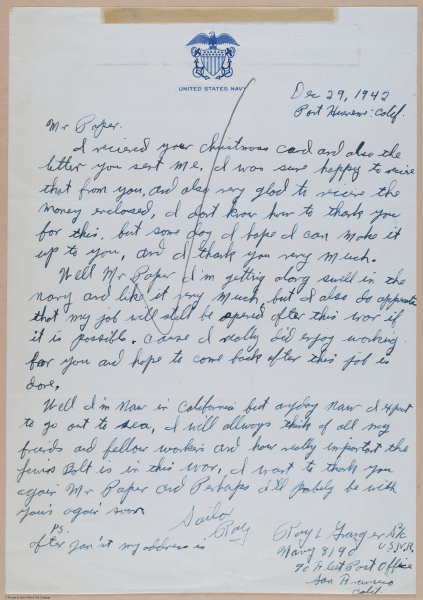 UNITED STATES NAVY
Dec 29, 1942
Port Hueneme Calif.
Mr Paper.
I recieved your christmass card and also the
letter you sent me. I was sure happy to recive
that from you, and also very glad to recive the
money enclosed, I dont know how to thank you
for this. but some day I hope I can make it
up to you, and I thank you very much.
Well Mr Paper I'm getting along swell in the
navy and like it very much, but I also do appreciate
that my job will still be opend after this war if
it is possible. cause I really did enjoy working
for you and hope to come back after this job is
done.
Well I'm now in California but anyday now I expect
to go out to sea, I will allways think of all my
freinds and fellow workers and how really important the
Bolt is in this war, I want to thank you
again Mr Paper and Perhaps I'll probely be with
you's again soon
Sailor
Roy
PS.
after Jan 1st my address is
Roy L
U.S.N.R.
Navy 8190
% Fleet Post Office
San Francisco
Calif.